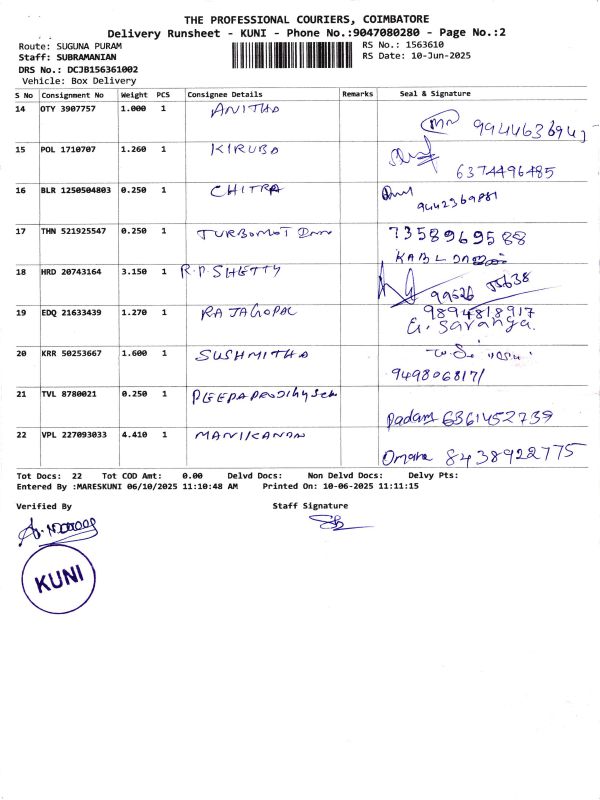 THE PROFESSIONAL COURIERS, COIMBATORE
Delivery Runsheet - KUNI - Phone No.:9047080280 - Page No.:2
Route: SUGUNA PURAM RS No.: 1563610
Staff: SUBRAMANIAN RS Date: 10-Jun-2025
DRS No.: DCJB156361002
Vehicle: Box Delivery
S No Consignment No Weight PCS Consignee Details Remarks Seal & Signature
14 OTY 3907757 1.000 1 ANITHA
15 POL 1710707 1.260 1 KIRUBA
6374496485
16 BLR 1250504803 0.250 1 CHITRA
9442369881
17 THN 521925547 0.250 1 TURBOMOT 7358969588
18 HRD 20743164 3.150 1 R.P. SHETTY
99526 55638
19 EDQ 21633439 1.270 1 RAJAGOPAL 9894818917
G. Saranga.
20 KRR 50253667 1.600 1 SUSHMITHA
9498068171
21 TVL 8780021 0.250 1
Padam 6361452739
22 VPL 227093033 4.410 1 MANIKANDAN
Omana 8438922775
Tot Docs: 22 Tot COD Amt: 0.00 Delvd Docs: Non Delvd Docs: Delvy Pts:
Entered By :MARESKUNI 06/10/2025 11:10:48 AM Printed On: 10-06-2025 11:11:15
Verified By Staff Signature
KUNI